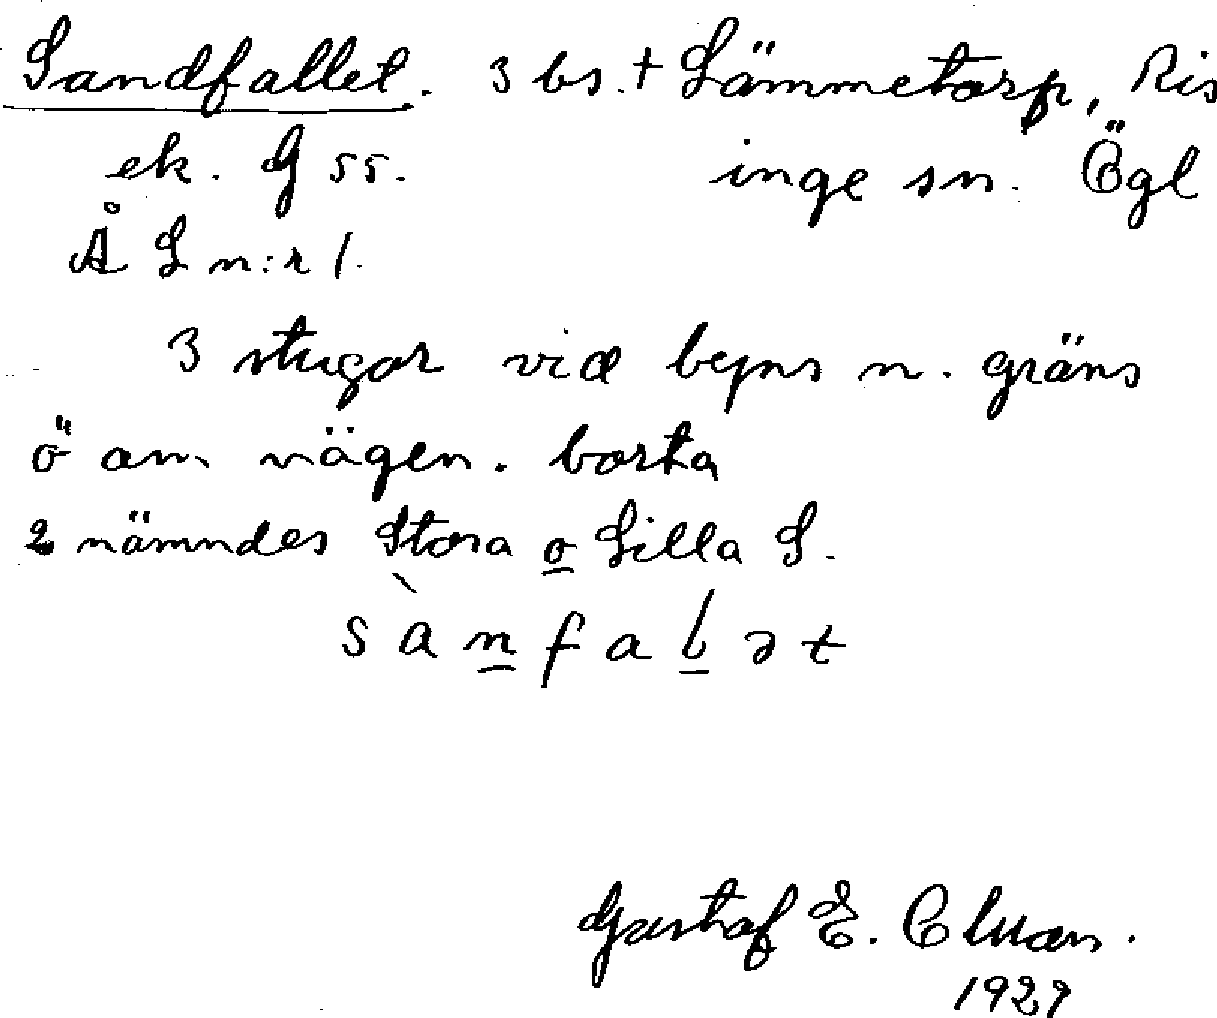 Sandfallet. 3 bs.† Lämmetorp, Ris
ek. G 55. inge sn. Ögl
Å S n:r 1.
3 stugor vid byns n. gräns
ö om vägen. borta
2 nämndes Stora o Lilla S.
s à n f a l ə t
Gustaf E.
1929